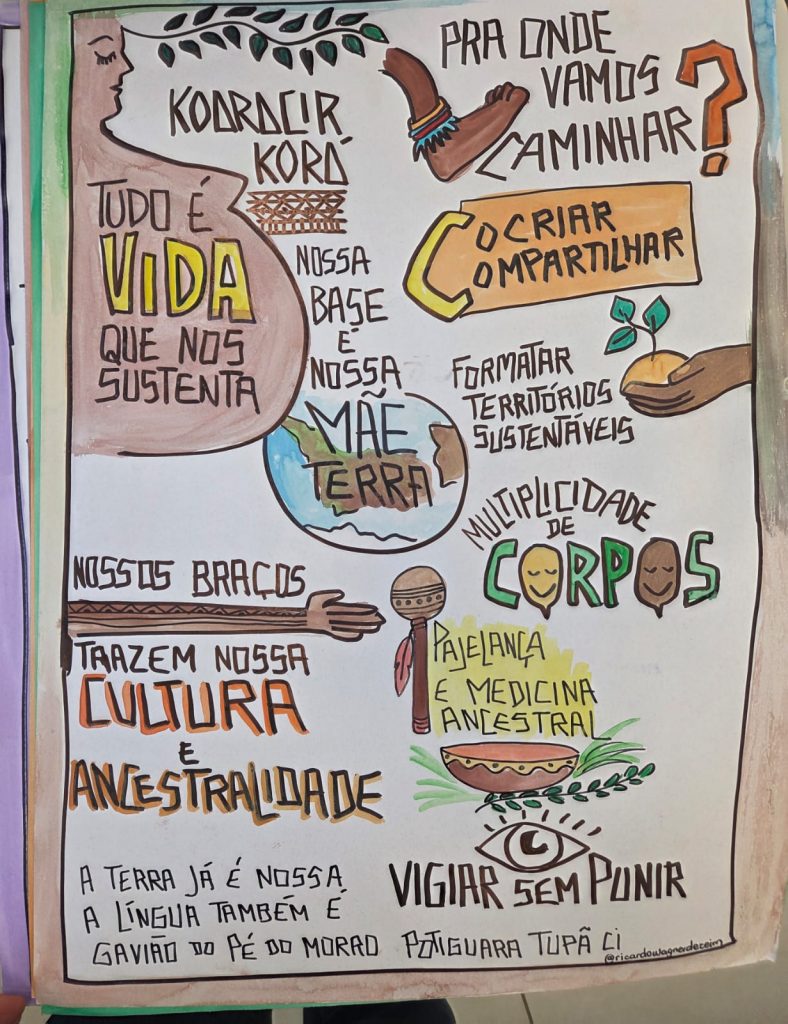 KOARACIR
KORÁ
TUDO É
VIDA
QUE NOS
SUSTENTA
NOSSA
BASE
É
NOSSA
MÃE
TERRA
NOSSOS BRAÇOS
TRAZEM NOSSA
CULTURA
E
ANCESTRALIDADE
A TERRA JÁ É NOSSA
A LÍNGUA TAMBÉM É
GAVIÃO DO PÉ DO MORRO
PRA ONDE
VAMOS
CAMINHAR?
COCRIAR
COMPARTILHAR
FORMATAR
TERRITÓRIOS
SUSTENTÁVEIS
MULTIPLICIDADE
DE
CORPOS
PAJELANÇA
E MEDICINA
ANCESTRAL
VIGIAR SEM PUNIR
POTIGUARA TUPÃ CI
@ricardowagnerdeceim